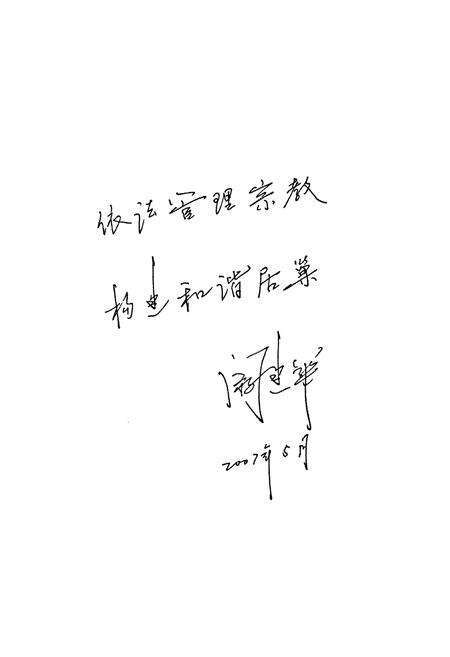 依法管理宗教
构建和谐居巢
建华
2007年5月